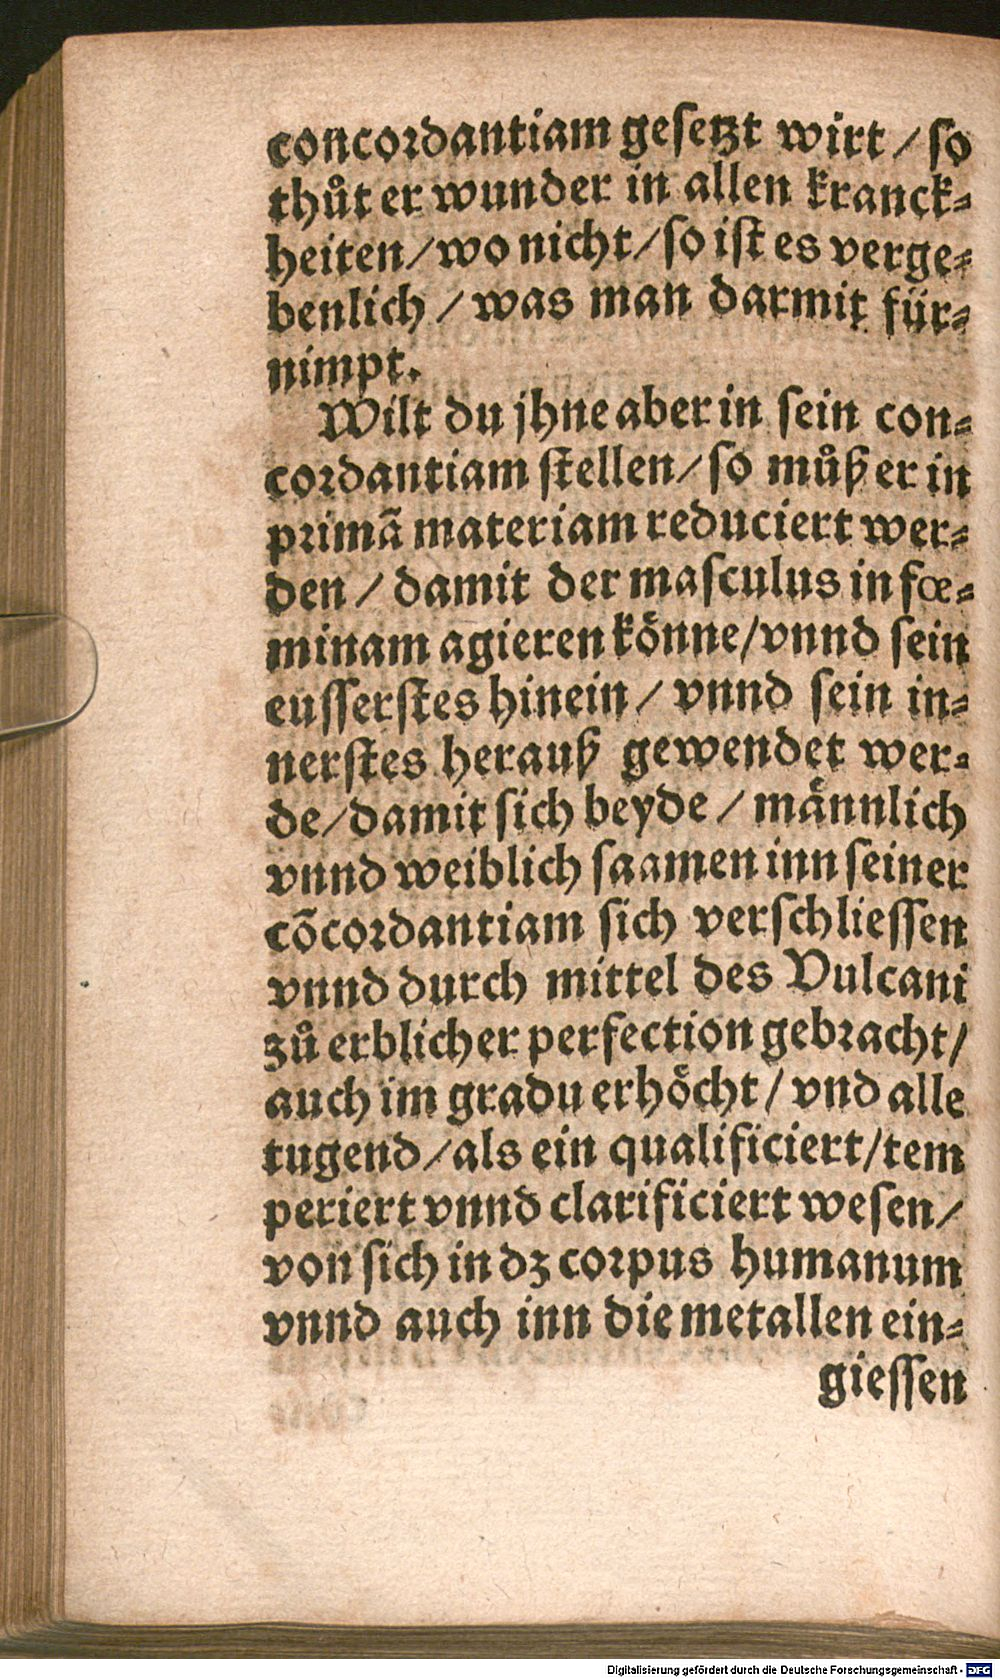 concordantiam gesetzt wirt / so
thůt er wunder in allen kranck⸗
heiten / wo nicht / so ist es verge⸗
benlich / was man darmit für⸗
nimpt.
Wilt du jhne aber in sein con⸗
cordantiam stellen / so můß er in
primã materiam reduciert wer⸗
den / damit der masculus in fœ⸗
minam agieren koͤnne / vnnd sein
eusserstes hinein / vnnd sein in⸗
nerstes herauß gewendet wer⸗
de / damit sich beyde / maͤnnlich
vnnd weiblich saamen inn seiner
cõcordantiam sich verschliessen
vnnd durch mittel des Vulcani
zů erblicher perfection gebracht /
auch im gradu erhoͤcht / vnd alle
tugend / als ein qualificiert / tem
periert vnnd clarificiert wesen /
von sich in dz corpus humanum
vnnd auch inn die metallen ein⸗
giessen
Digitalisierung gefördert durch die Deutsche Forschungsgemeinschaft - DFG